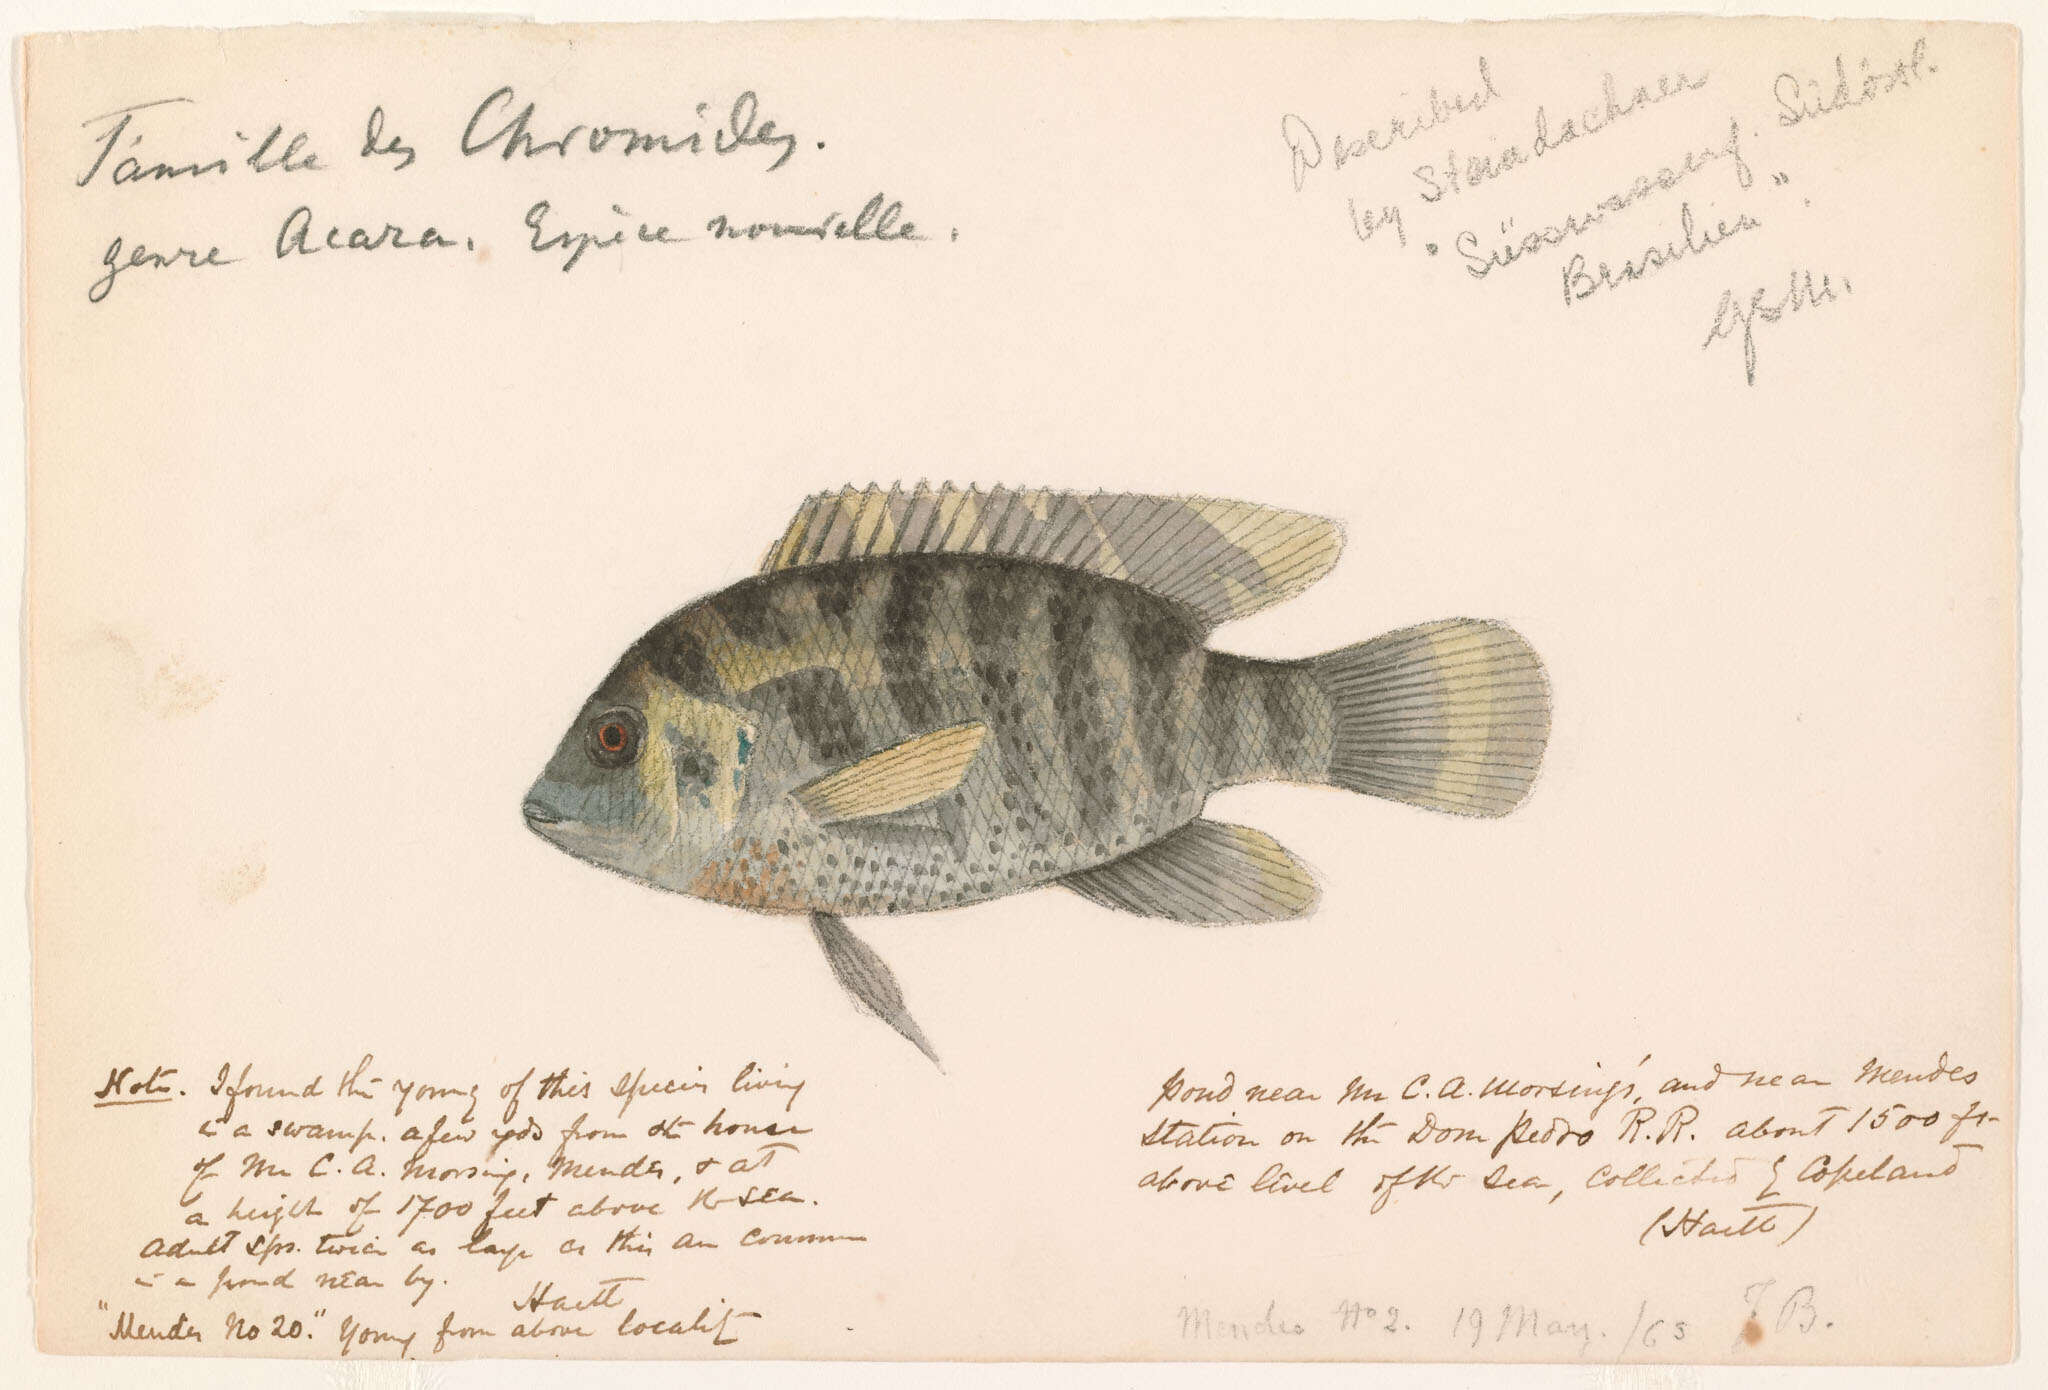 Famille des Chromides.
genre Acara. Espèce nouvelle.
Described
by Steindachner
"Süsswasserf. Südöstl.
Brasilien".
Note. I found the young of this species living
in a swamp. a few yds from the house
of Mr C. A. Morsing, Mendes, & at
a height of 1700 feet above the sea.
Adult sps. twice as large as this are common
in a pond near by.
Hartt
"Mendes No 20." Young from above locality
pond near Mr C. A. Morsing's, and near Mendes
station on the Dom Pedro R.R. about 1500 ft
above level of the sea, Collected by Copeland
(Hartt)
Mendes No 2. 19 May. /65 J B.